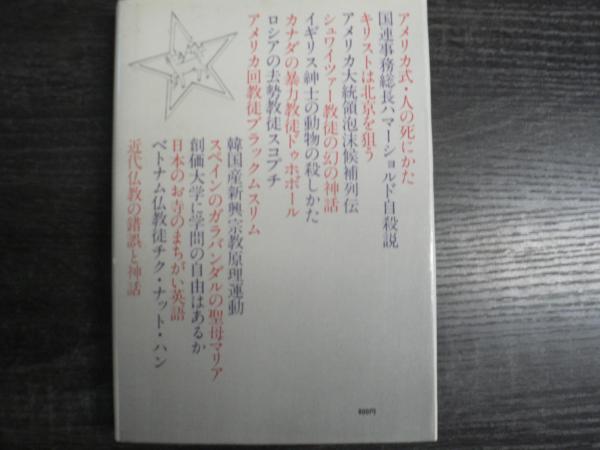 アメリカ式・人の死にかた
国連事務総長ハマーショルド自殺説
キリストは北京を狙う
アメリカ大統領泡沫候補列伝
シュワイツァー教徒の幻の神話
イギリス紳士の動物の殺しかた
カナダの暴力教徒ドゥホボール
ロシアの去勢教徒スコプチ
アメリカ回教徒ブラックムスリム
韓国産新興宗教原理運動
スペインのガラバンダルの聖母マリア
創価大学に学問の自由はあるか
日本のお寺のまちがい英語
ベトナム仏教徒チク・ナット・ハン
近代仏教の錯誤と神話
800円